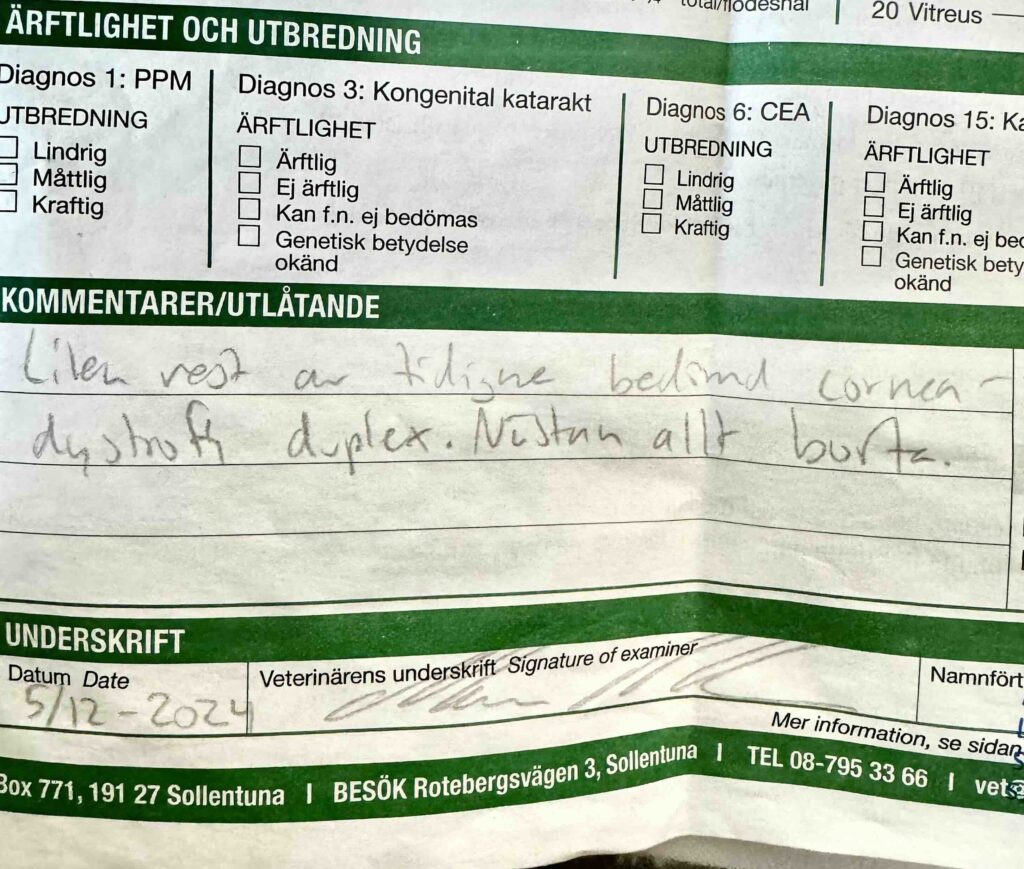 total/flödeshål
20 Vitreus
ÄRFTLIGHET OCH UTBREDNING
Diagnos 1: PPM
UTBREDNING
Lindrig
Måttlig
Kraftig
Diagnos 3: Kongenital katarakt
ÄRFTLIGHET
Ärftlig
Ej ärftlig
Kan f.n. ej bedömas
Genetisk betydelse
okänd
Diagnos 6: CEA
UTBREDNING
Lindrig
Måttlig
Kraftig
Diagnos 15: Ka
ÄRFTLIGHET
Ärftlig
Ej ärftlig
Kan f.n. ej bed
Genetisk bety
okänd
KOMMENTARER/UTLÅTANDE
Liten rest av tidigne bedömd cornea-
dystrofi duplex. Nästan allt borta.
UNDERSKRIFT
Datum Date
5/12-2024
Veterinärens underskrift Signature of examiner
Namnfört
Mer information, se sidan
Box 771, 191 27 Sollentuna | BESÖK Rotebergsvägen 3, Sollentuna | TEL 08-795 33 66 | vet